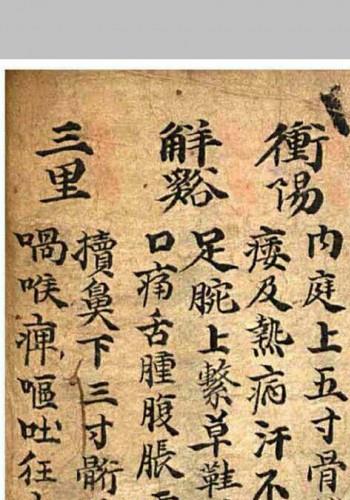 衝陽
內庭上五寸骨
痿及熱病汗不
觧谿
足腕上繫草鞋
口痛舌腫腹脹
三里
犢鼻下三寸䯒
喎喉痺嘔吐狂